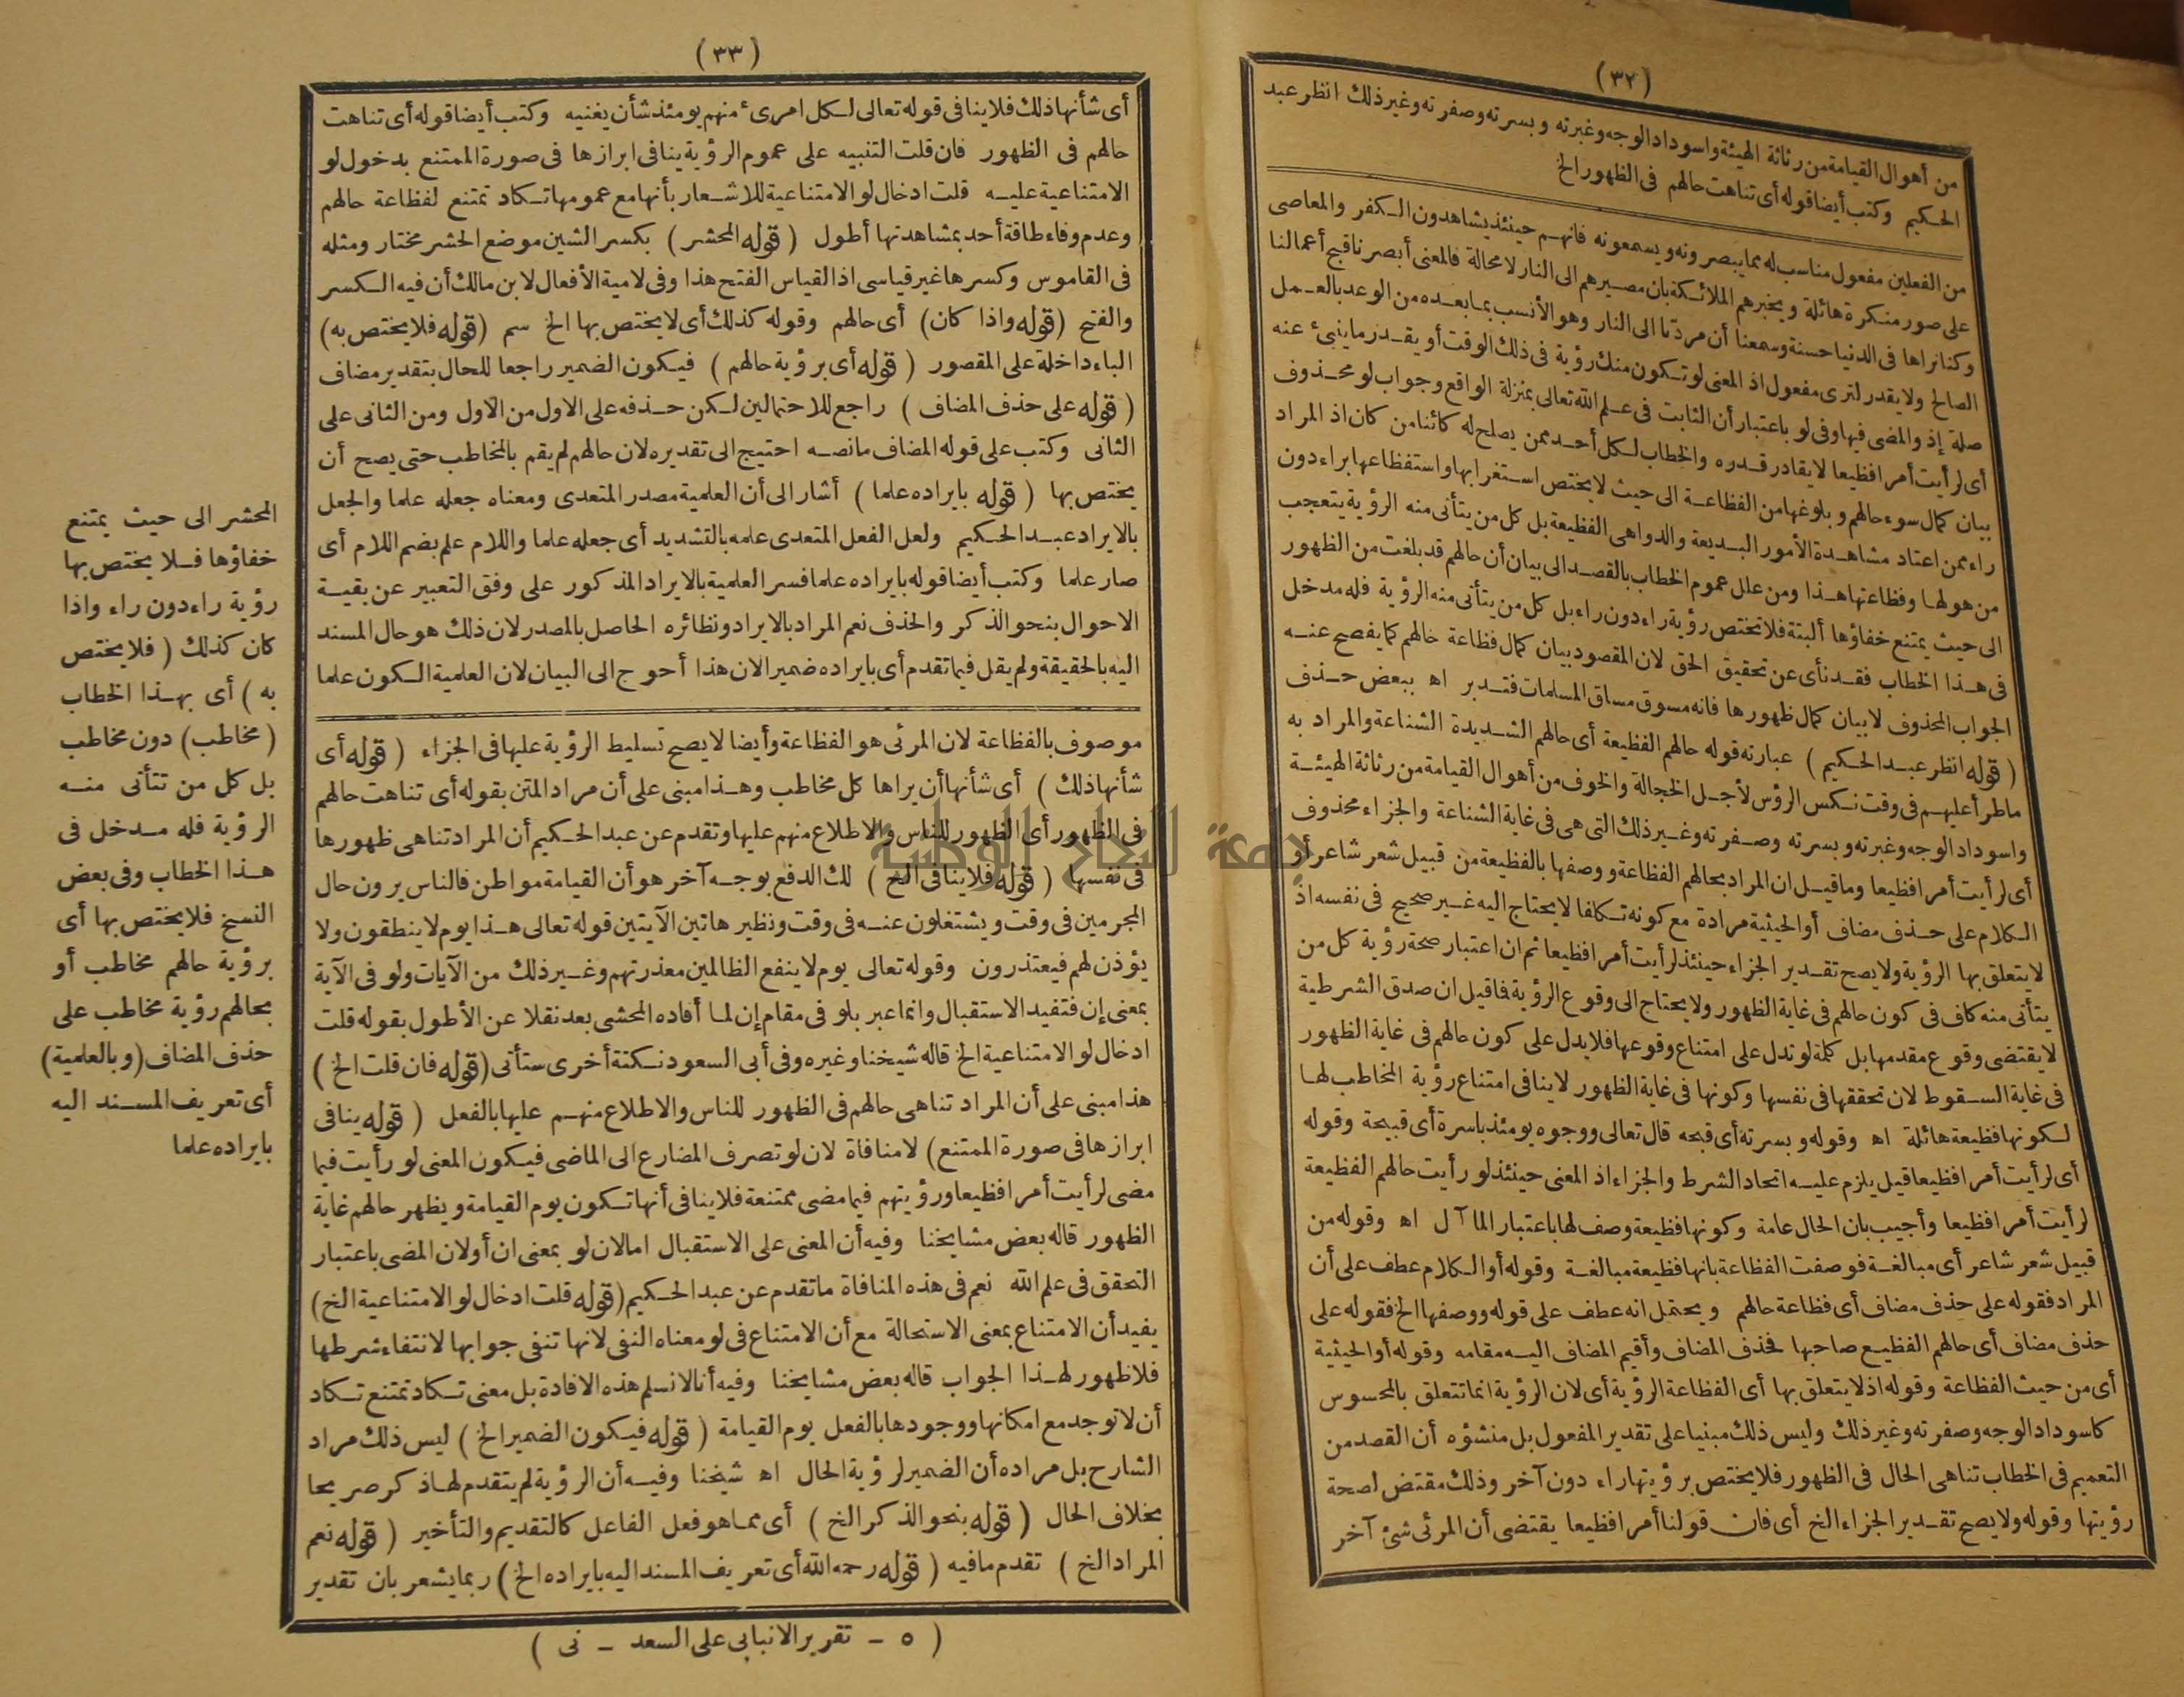 (٣٢)
من أهوال القيامة من رثاثة الهيئة واسوداد الوجه وغبرته وبسرته وصفرته وغير ذلك انظر عبد
الحكيم وكتب أيضا قوله أى تناهت حالهم فى الظهور الخ
من الفعلين مفعول مناسب له مما يبصرونه ويسمعونه فانهم حينئذ يشاهدون الكفر والمعاصى
على صور منكرة هائلة ويخبرهم الملائكة بان مصيرهم الى النار لا محالة فالمعنى أبصرنا قبح أعمالنا
وكنا نراها فى الدنيا حسنة وسمعنا أن مردّنا الى النار وهو الأنسب بما بعده من الوعد بالعمل
الصالح ولا يقدر لترى مفعول اذ المعنى لو تكون منك رؤية فى ذلك الوقت أو يقدر ما ينبئ عنه
صلة إذ والمضى فيها وفى لو باعتبار أن الثابت فى علم الله تعالى بمنزلة الواقع وجواب لو محذوف
أى لرأيت أمرا فظيعا لا يقادر قدره والخطاب لكل أحد ممن يصلح له كائنا من كان اذ المراد
بيان كمال سوء حالهم وبلوغها من الفظاعة الى حيث لا يختص استغرابها واستفظاعها براء دون
راء ممن اعتاد مشاهدة الأمور البديعة والدواهى الفظيعة بل كل من يتأتى منه الرؤية يتعجب
من هولها وفظاعتها هذا ومن علل عموم الخطاب بالقصد الى بيان أن حالهم قد بلغت من الظهور
الى حيث يمتنع خفاؤها ألبتة فلا تختص رؤية راء دون راء بل كل من يتأتى منه الرؤية فله مدخل
فى هذا الخطاب فقد نأى عن تحقيق الحق لان المقصود بيان كمال فظاعة حالهم كما يفصح عنه
الجواب المحذوف لا بيان كمال ظهورها فانه مسوق مساق المسلمات فتدبر اه ببعض حذف
(قوله انظر عبد الحكيم) عبارته قوله حالهم الفظيعة أى حالهم الشديدة الشناعة والمراد به
ما طرأ عليهم فى وقت نكس الرؤس لأجل الخجالة والخوف من أهوال القيامة من رثاثة الهيئة
واسوداد الوجه وغبرته وبسرته وصفرته وغير ذلك التى هى فى غاية الشناعة والجزاء محذوف
أى لرأيت أمرا فظيعا وما قيل ان المراد بحالهم الفظاعة ووصفها بالفظيعة من قبيل شعر شاعر أو
الكلام على حذف مضاف أو الحيثية مرادة مع كونه تكلفا لا يحتاج اليه غير صحيح فى نفسه اذ
لا يتعلق بها الرؤية ولا يصح تقدير الجزاء حينئذ لرأيت أمرا فظيعا ثم ان اعتبار صحة رؤية كل من
يتأتى منه كاف فى كون حالهم فى غاية الظهور ولا يحتاج الى وقوع الرؤية فما قيل ان صدق الشرطية
لا يقتضى وقوع مقدمها بل كلمة لو تدل على امتناع وقوعها فلا يدل على كون حالهم فى غاية الظهور
فى غاية السقوط لان تحققها فى نفسها وكونها فى غاية الظهور لا ينافى امتناع رؤية المخاطب لها
لكونها فظيعة هائلة اه وقوله وبسرته أى قبحه قال تعالى ووجوه يومئذ باسرة أى قبيحة وقوله
أى لرأيت أمرا فظيعا قيل يلزم عليه اتحاد الشرط والجزاء اذ المعنى حينئذ لو رأيت حالهم الفظيعة
لرأيت أمرا فظيعا وأجيب بان الحال عامة وكونها فظيعة وصف لها باعتبار المآل اه وقوله من
قبيل شعر شاعر أى مبالغة فوصفت الفظاعة بانها فظيعة مبالغة وقوله أو الكلام عطف على أن
المراد فقوله على حذف مضاف أى فظاعة حالهم ويحتمل انه عطف على قوله ووصفها الخ فقوله على
حذف مضاف أى حالهم الفظيع صاحبها فحذف المضاف وأقيم المضاف اليه مقامه وقوله أو الحيثية
أى من حيث الفظاعة وقوله اذ لا يتعلق بها أى الفظاعة الرؤية أى لان الرؤية انما تتعلق بالمحسوس
كاسوداد الوجه وصفرته وغير ذلك وليس ذلك مبنيا على تقدير المفعول بل منشؤه أن القصد من
التعميم فى الخطاب تناهى الحال فى الظهور فلا يختص برؤيتها راء دون آخر وذلك مقتض لصحة
رؤيتها وقوله ولا يصح تقدير الجزاء الخ أى فان قولنا أمرا فظيعا يقتضى أن المرئى شئ آخر
(٣٣)
أى شأنها ذلك فلا ينافى قوله تعالى لكل امرىء منهم يومئذ شأن يغنيه وكتب أيضا قوله أى تناهت
حالهم فى الظهور فان قلت التنبيه على عموم الرؤية ينافى ابرازها فى صورة الممتنع بدخول لو
الامتناعية عليه قلت ادخال لو الامتناعية للاشعار بأنها مع عمومها تكاد تمتنع لفظاعة حالهم
وعدم وفاء طاقة أحد بمشاهدتها أطول (قوله المحشر) بكسر الشين موضع الحشر مختار ومثله
فى القاموس وكسرها غير قياسى اذ القياس الفتح هذا وفى لامية الأفعال لابن مالك أن فيه الكسر
والفتح (قوله واذا كان) أى حالهم وقوله كذلك أى لا يختص بها الخ سم (قوله فلا يختص به)
الباء داخلة على المقصور (قوله أى برؤية حالهم) فيكون الضمير راجعا للحال بتقدير مضاف
(قوله على حذف المضاف) راجع للاحتمالين لكن حذفه على الاول من الأول ومن الثانى على
الثانى وكتب على قوله المضاف ما نصه احتيج الى تقديره لان حالهم لم يقم بالمخاطب حتى يصح أن
يختص بها (قوله بايراده علما) أشار الى أن العلمية مصدر المتعدى ومعناه جعله علما والجعل
بالايراد عبد الحكيم ولعل الفعل المتعدى علمه بالتشديد أى جعله علما واللام علم بضم اللام أى
صار علما وكتب أيضا قوله بايراده علما فسر العلمية بالايراد المذكور على وفق التعبير عن بقية
الاحوال بنحو الذكر والحذف نعم المراد بالايراد ونظائره الحاصل بالمصدر لان ذلك هو حال المسند
اليه بالحقيقة ولم يقل فيما تقدم أى بايراده ضميرا لان هذا أحوج الى البيان لان العلمية الكون علما
موصوف بالفظاعة لان المرئى هو الفظاعة وأيضا لا يصح تسليط الرؤية عليها فى الجزاء (قوله أى
شأنها ذلك) أى شأنها أن يراها كل مخاطب وهذا مبنى على أن مراد المتن بقوله أى تناهت حالهم
فى الظهور أى الظهور للناس والاطلاع منهم عليها وتقدم عن عبد الحكيم أن المراد تناهى ظهورها
فى نفسها (قوله فلا ينافى الخ) لك الدفع بوجه آخر هو أن القيامة مواطن فالناس يرون حال
المجرمين فى وقت ويشتغلون عنه فى وقت ونظير هاتين الآيتين قوله تعالى هذا يوم لا ينطقون ولا
يؤذن لهم فيعتذرون وقوله تعالى يوم لا ينفع الظالمين معذرتهم وغير ذلك من الآيات ولو فى الآية
بمعنى إن فتقيد الاستقبال وانما عبر بلو فى مقام إن لما أفاده المحشى بعد نقلا عن الأطول بقوله قلت
ادخال لو الامتناعية الخ قاله شيخنا وغيره وفى أبى السعود نكتة أخرى ستأتى (قوله فان قلت الخ)
هذا مبنى على أن المراد تناهى حالهم فى الظهور للناس والاطلاع منهم عليها بالفعل (قوله ينافى
ابرازها فى صورة الممتنع) لا منافاة لان لو تصرف المضارع الى الماضى فيكون المعنى لو رأيت فيما
مضى لرأيت أمرا فظيعا ورؤيتهم فيما مضى ممتنعة فلا ينافى أنها تكون يوم القيامة ويظهر حالهم غاية
الظهور قاله بعض مشايخنا وفيه أن المعنى على الاستقبال اما لان لو بمعنى ان أو لان المضى باعتبار
التحقق فى علم الله نعم فى هذه المنافاة ما تقدم عن عبد الحكيم (قوله قلت ادخال لو الامتناعية الخ)
يفيد أن الامتناع بمعنى الاستحالة مع أن الامتناع فى لو معناه النفى لانها تنفى جوابها لانتفاء شرطها
فلا ظهور لهذا الجواب قاله بعض مشايخنا وفيه أنا لا نسلم هذه الافادة بل معنى تكاد تمتنع تكاد
أن لا توجد مع امكانها ووجودها بالفعل يوم القيامة (قوله فيكون الضمير الخ) ليس ذلك مراد
الشارح بل مراده أن الضمير لرؤية الحال اه شيخنا وفيه أن الرؤية لم يتقدم لها ذكر صريحا
بخلاف الحال (قوله بنحو الذكر الخ) أى مما هو فعل الفاعل كالتقديم والتأخير (قوله نعم
المراد الخ) تقدم ما فيه (قوله رحمه الله أى تعريف المسند اليه بايراده الخ) ربما يشعر بان تقدير
المحشر الى حيث يمتنع
خفاؤها فلا يختص بها
رؤية راء دون راء واذا
كان كذلك (فلا يختص
به) أى بهذا الخطاب
(مخاطب) دون مخاطب
بل كل من تتأتى منه
الرؤية فله مدخل فى
هذا الخطاب وفى بعض
النسخ فلا يختص بها أى
برؤية حالهم مخاطب أو
بحالهم رؤية مخاطب على
حذف المضاف (وبالعلمية)
أى تعريف المسند اليه
بايراده علما
(٥ - تقرير الانبابى على السعد - نى)
جامعة النجاح الوطنية